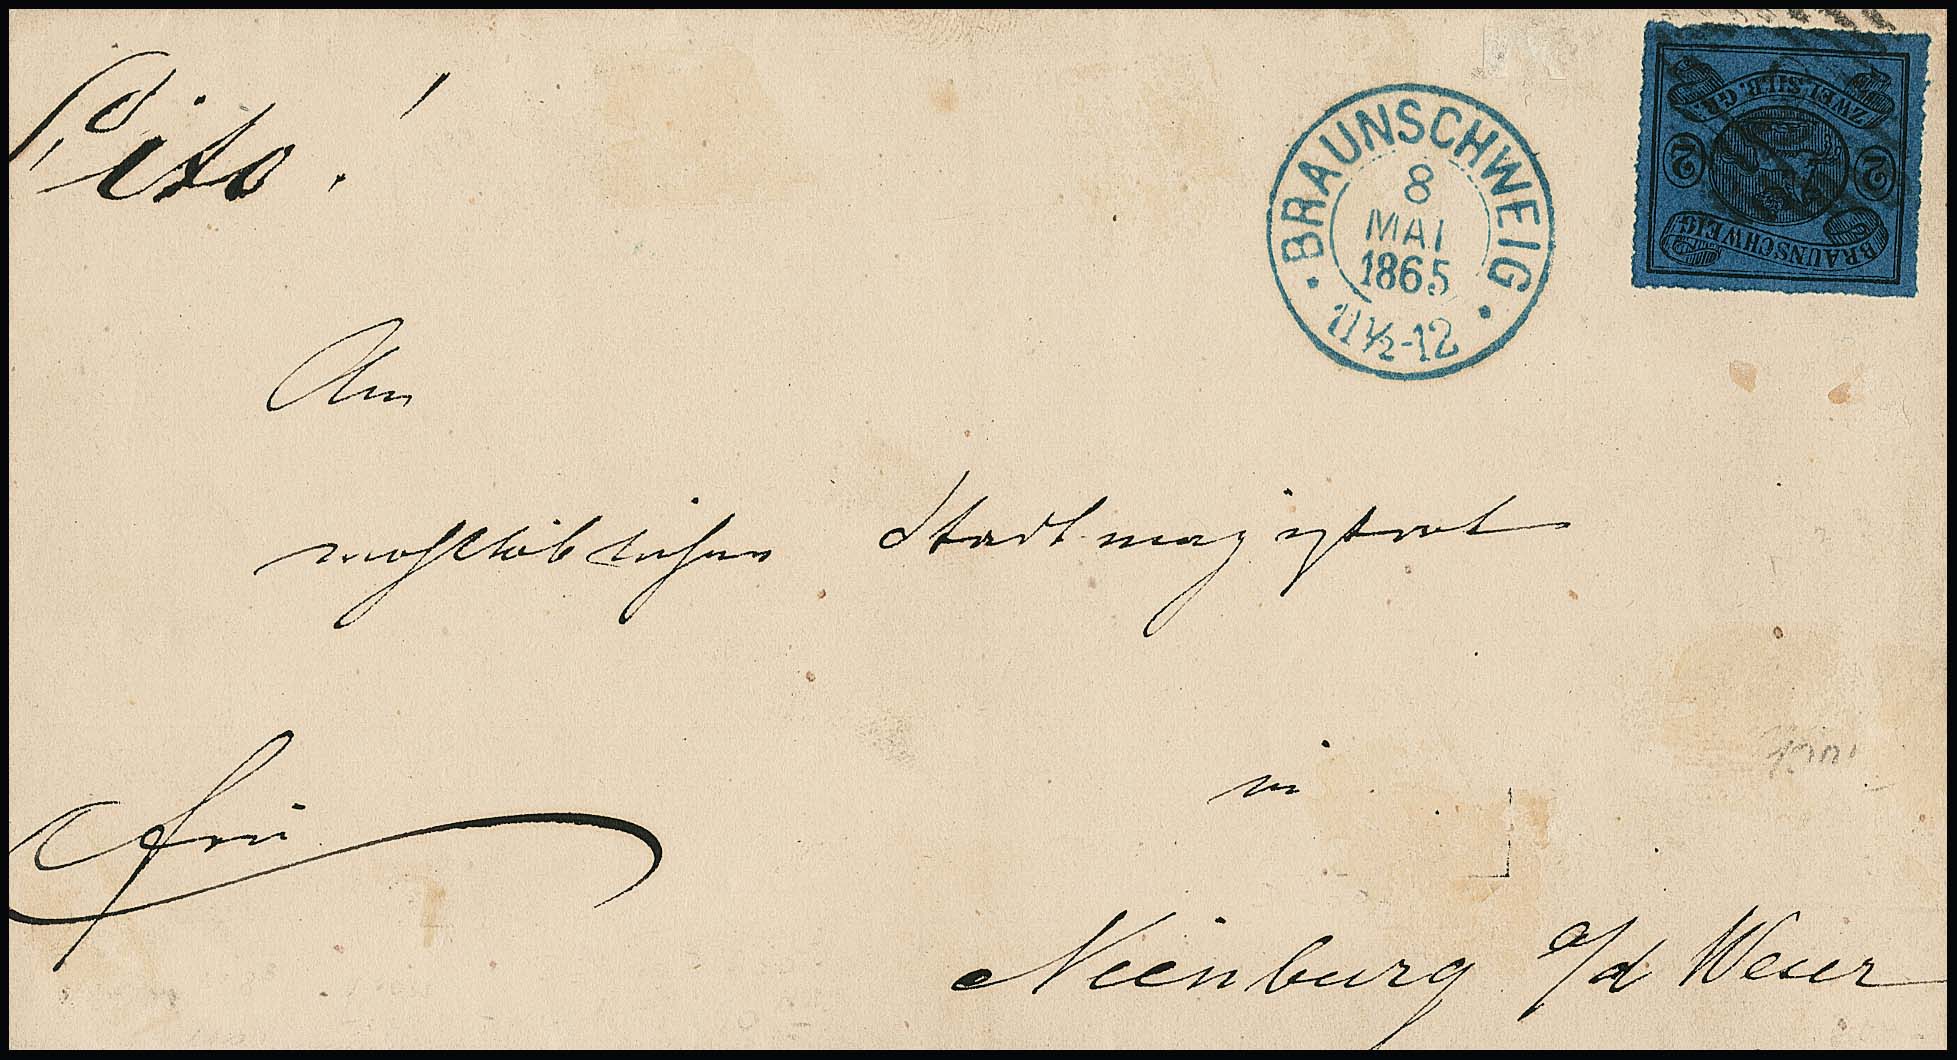 Cito!
BRAUNSCHWEIG
8
MAI
1865
11½-12
ZWEI SILB. GR.
2 2
BRAUNSCHWEIG
An
wohllöblichen Stadtmagistrat
frei
in
Nienburg a/d Weser